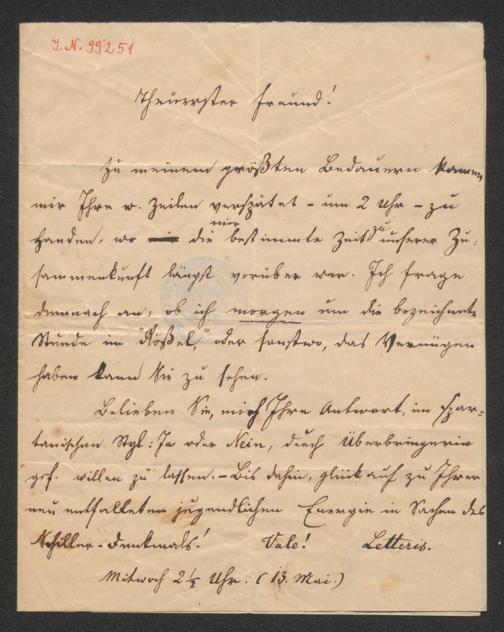 I. N. 99251
Theuerster Freund!
Zu meinem größten Bedauern kamen
mir Ihre w. Zeilen verspätet – um 2 Uhr – zu
Handen, wo mir die bestimmte Zeit zu unserer Zu-
sammenkunft längst vorüber war. Ich frage
demnach an, ob ich morgen um die bezeichnete
Stunde im "Rößel," oder sonstwo, das Vernügen
haben kann Sie zu sehen.
Belieben Sie, mich Ihre Antwort, im spar-
tanischen Styl: Ja oder Nein, durch Überbringerin
gef. wissen zu lassen. – Bis dahin, glückauf zu Ihrer
neu entfalteten jugendlichen Energie in Sachen des
Schiller-Denkmals! Vale! Letteris.
Mitwoch 2½ Uhr: (13. Mai.)